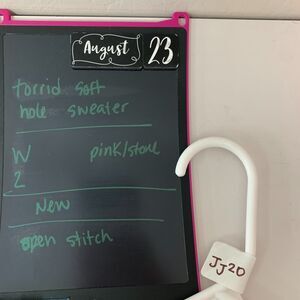 August 23
torrid soft
hole sweater
W pink/stone
2
New
open stitch
JJ20